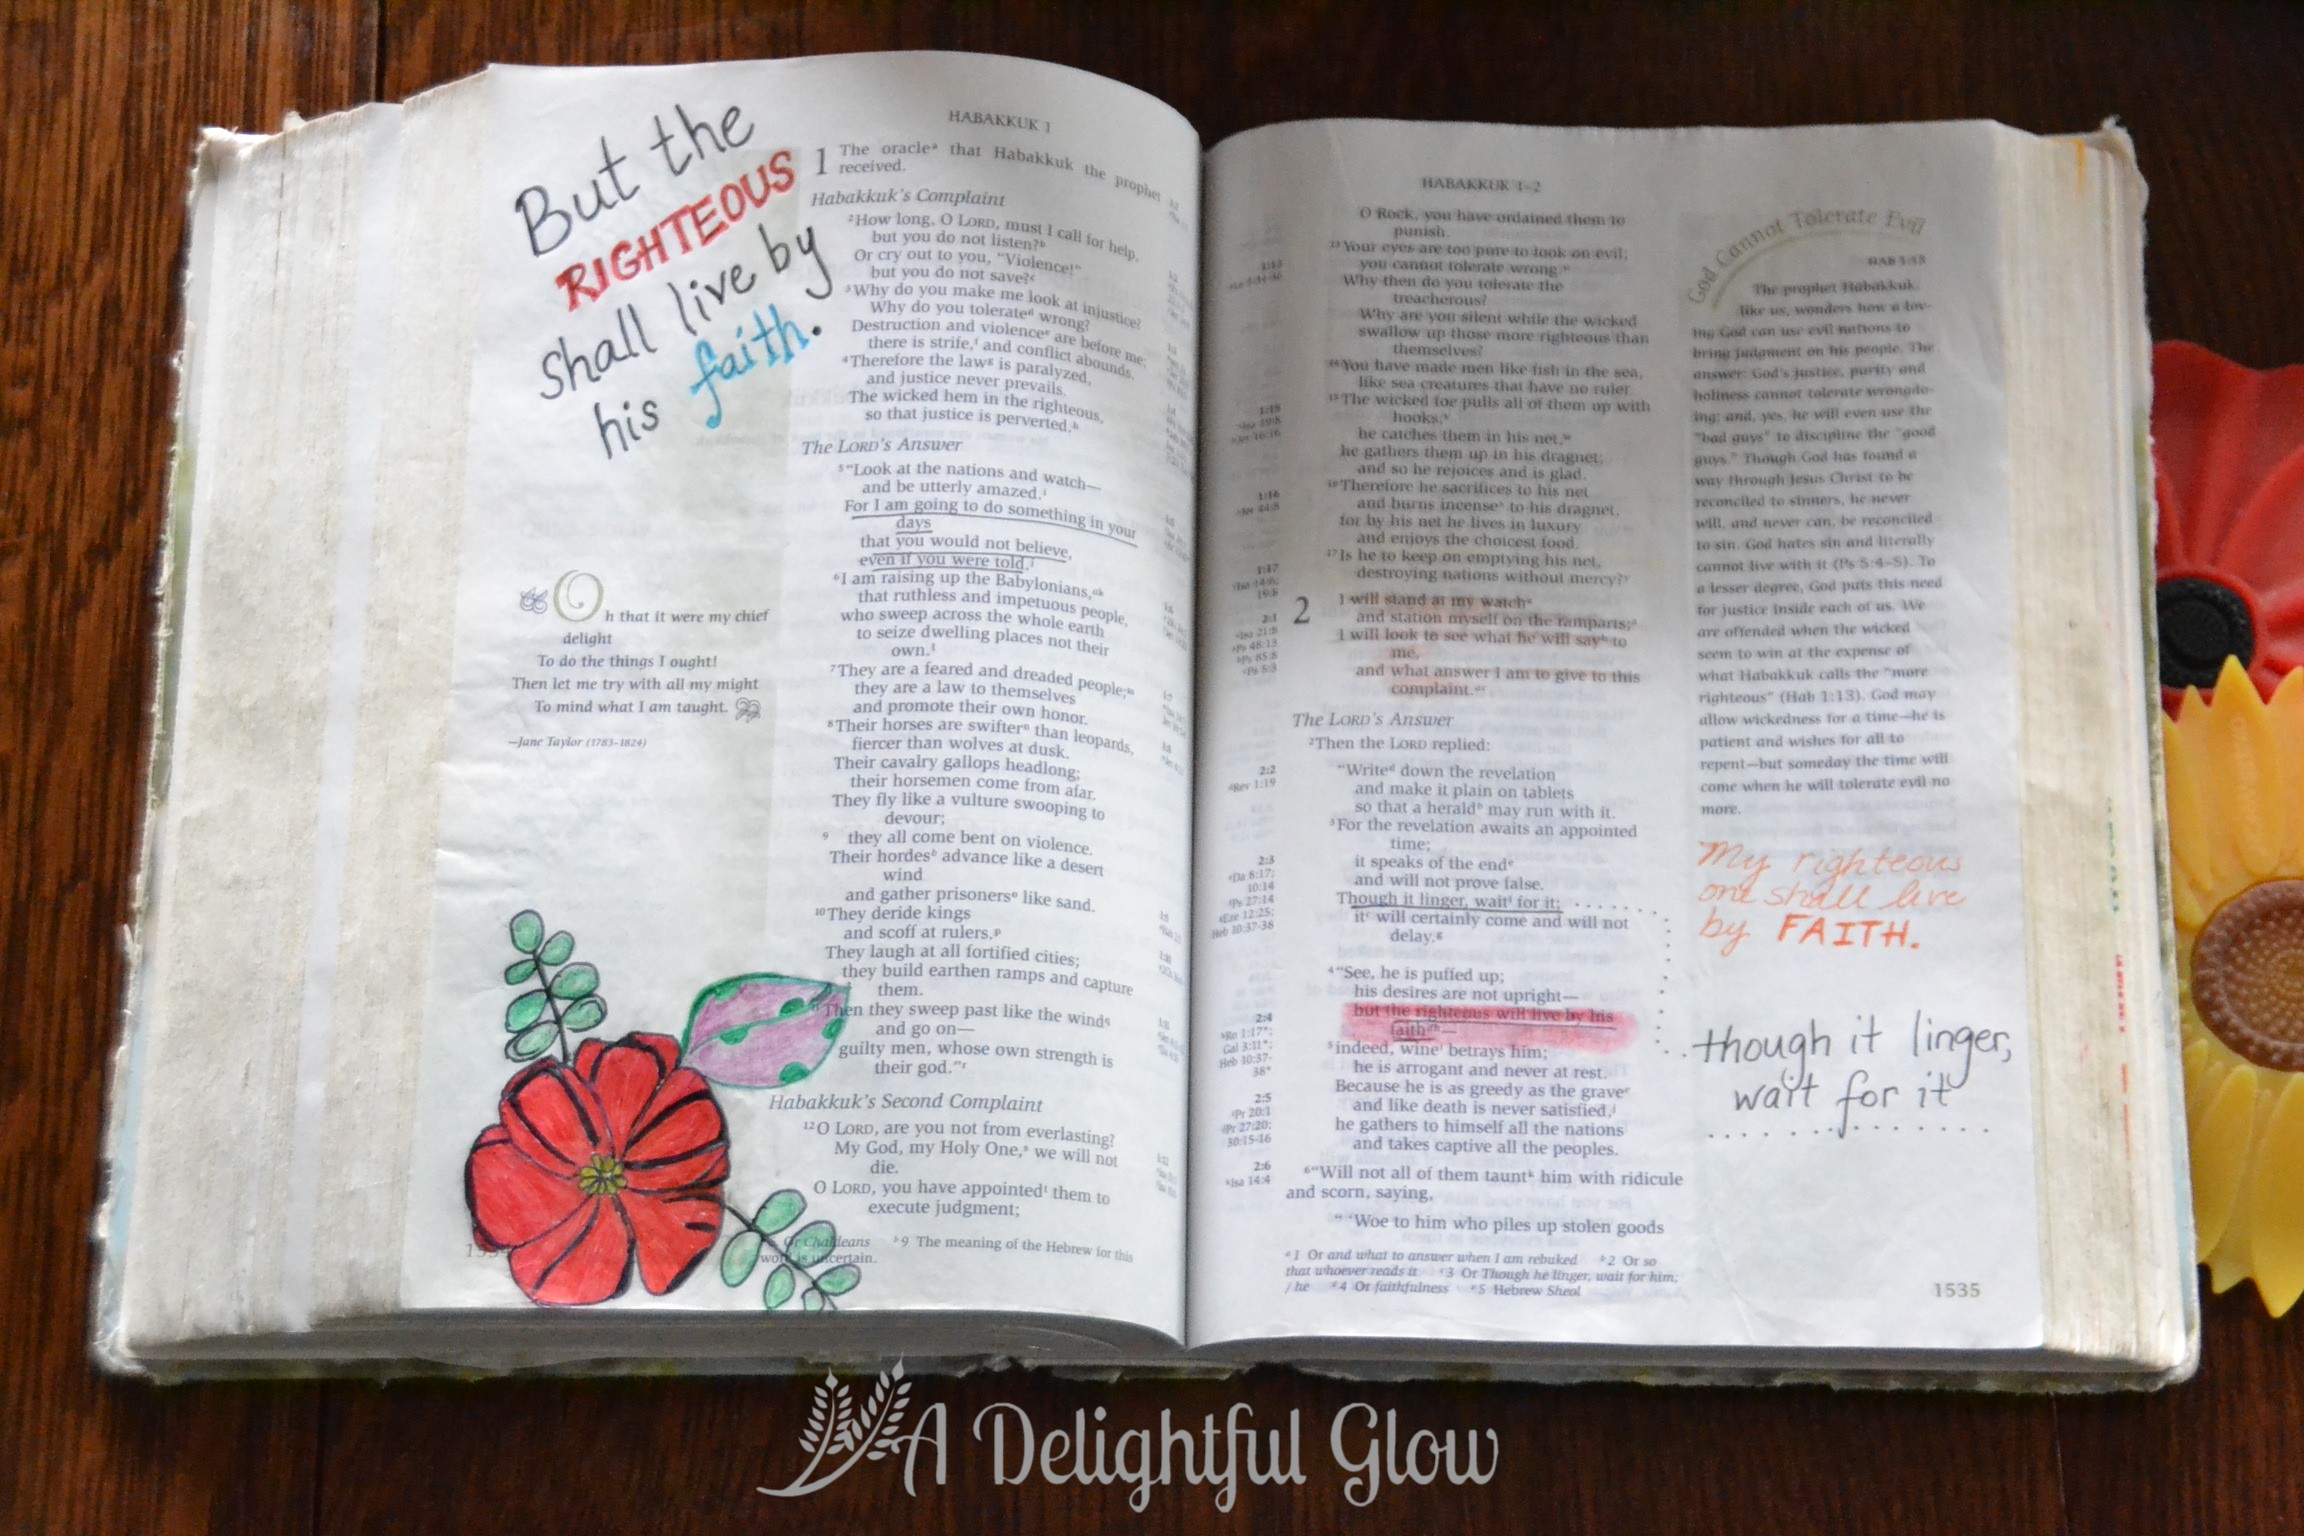 But the
RIGHTEOUS
shall live by
his faith.
Oh that it were my chief
delight
To do the things I ought!
Then let me try with all my might
To mind what I am taught.
—Jane Taylor (1783–1824)
HABAKKUK 1
1 The oracleᵃ that Habakkuk the prophet
received.
Habakkuk's Complaint
²How long, O LORD, must I call for help,
but you do not listen?ᵇ
Or cry out to you, "Violence!"
but you do not save?ᶜ
³Why do you make me look at injustice?
Why do you tolerateᵈ wrong?
Destruction and violenceᵉ are before me;
there is strife,ᶠ and conflict abounds.
⁴Therefore the lawᵍ is paralyzed,
and justice never prevails.
The wicked hem in the righteous,
so that justice is perverted.ʰ
The LORD's Answer
⁵"Look at the nations and watch—
and be utterly amazed.ⁱ
For I am going to do something in your
days
that you would not believe,
even if you were told.ʲ
⁶I am raising up the Babylonians,ᵃᵏ
that ruthless and impetuous people,
who sweep across the whole earth
to seize dwelling places not their
own.ˡ
⁷They are a feared and dreaded people;ᵐ
they are a law to themselves
and promote their own honor.
⁸Their horses are swifterⁿ than leopards,
fiercer than wolves at dusk.
Their cavalry gallops headlong;
their horsemen come from afar.
They fly like a vulture swooping to
devour;
⁹ they all come bent on violence.
Their hordesᵇ advance like a desert
wind
and gather prisonersᵒ like sand.
¹⁰They deride kings
and scoff at rulers.ᵖ
They laugh at all fortified cities;
they build earthen ramps and capture
them.
Then they sweep past like the wind
and go on—
guilty men, whose own strength is
their god."ʳ
Habakkuk's Second Complaint
¹²O LORD, are you not from everlasting?
My God, my Holy One,ˢ we will not
die.
O LORD, you have appointedᵗ them to
execute judgment;
Or Chaldeans ᵇ9 The meaning of the Hebrew for this
word is uncertain.
HABAKKUK 1–2
O Rock, you have ordained them to
punish.
¹³Your eyes are too pure to look on evil;
you cannot tolerate wrong.
Why then do you tolerate the
treacherous?
Why are you silent while the wicked
swallow up those more righteous than
themselves?
¹⁴You have made men like fish in the sea,
like sea creatures that have no ruler.
¹⁵The wicked foe pulls all of them up with
hooks,
he catches them in his net,
he gathers them up in his dragnet;
and so he rejoices and is glad.
¹⁶Therefore he sacrifices to his net
and burns incense to his dragnet,
for by his net he lives in luxury
and enjoys the choicest food.
¹⁷Is he to keep on emptying his net,
destroying nations without mercy?
2 I will stand at my watch
and station myself on the ramparts;
I will look to see what he will say to
me,
and what answer I am to give to this
complaint.
The LORD's Answer
²Then the LORD replied:
"Write down the revelation
and make it plain on tablets
so that a heraldᵇ may run with it.
³For the revelation awaits an appointed
time;
it speaks of the endᵉ
and will not prove false.
Though it linger, waitᶠ for it;
itᶜ will certainly come and will not
delay.ᵍ
⁴"See, he is puffed up;
his desires are not upright—
but the righteous will live by his
faithᵈʰ—
⁵indeed, wineⁱ betrays him;
he is arrogant and never at rest.
Because he is as greedy as the graveᵉ
and like death is never satisfied,ʲ
he gathers to himself all the nations
and takes captive all the peoples.
⁶"Will not all of them tauntᵏ him with ridicule
and scorn, saying,
" 'Woe to him who piles up stolen goods
ᵃ1 Or and what to answer when I am rebuked ᵇ2 Or so
that whoever reads it ᶜ3 Or Though he linger, wait for him;
/ he ᵈ4 Or faithfulness ᵉ5 Hebrew Sheol
2:2
Rev 1:19
2:3
Da 8:17;
10:14
Ps 27:14
Eze 12:25;
Heb 10:37-38
2:4
Ro 1:17*;
Gal 3:11*;
Heb 10:37-
38*
2:5
Pr 20:1
Pr 27:20;
30:15-16
2:6
Isa 14:4
God Cannot Tolerate Evil
HAB 1:13
The prophet Habakkuk,
like us, wonders how a lov-
ing God can use evil nations to
bring judgment on his people. The
answer: God's justice, purity and
holiness cannot tolerate wrongdo-
ing; and, yes, he will even use the
"bad guys" to discipline the "good
guys." Though God has found a
way through Jesus Christ to be
reconciled to sinners, he never
will, and never can, be reconciled
to sin. God hates sin and literally
cannot live with it (Ps 5:4–5). To
a lesser degree, God puts this need
for justice inside each of us. We
are offended when the wicked
seem to win at the expense of
what Habakkuk calls the "more
righteous" (Hab 1:13). God may
allow wickedness for a time—he is
patient and wishes for all to
repent—but someday the time will
come when he will tolerate evil no
more.
My righteous
one shall live
by FAITH.
though it linger,
wait for it
1535
A Delightful Glow